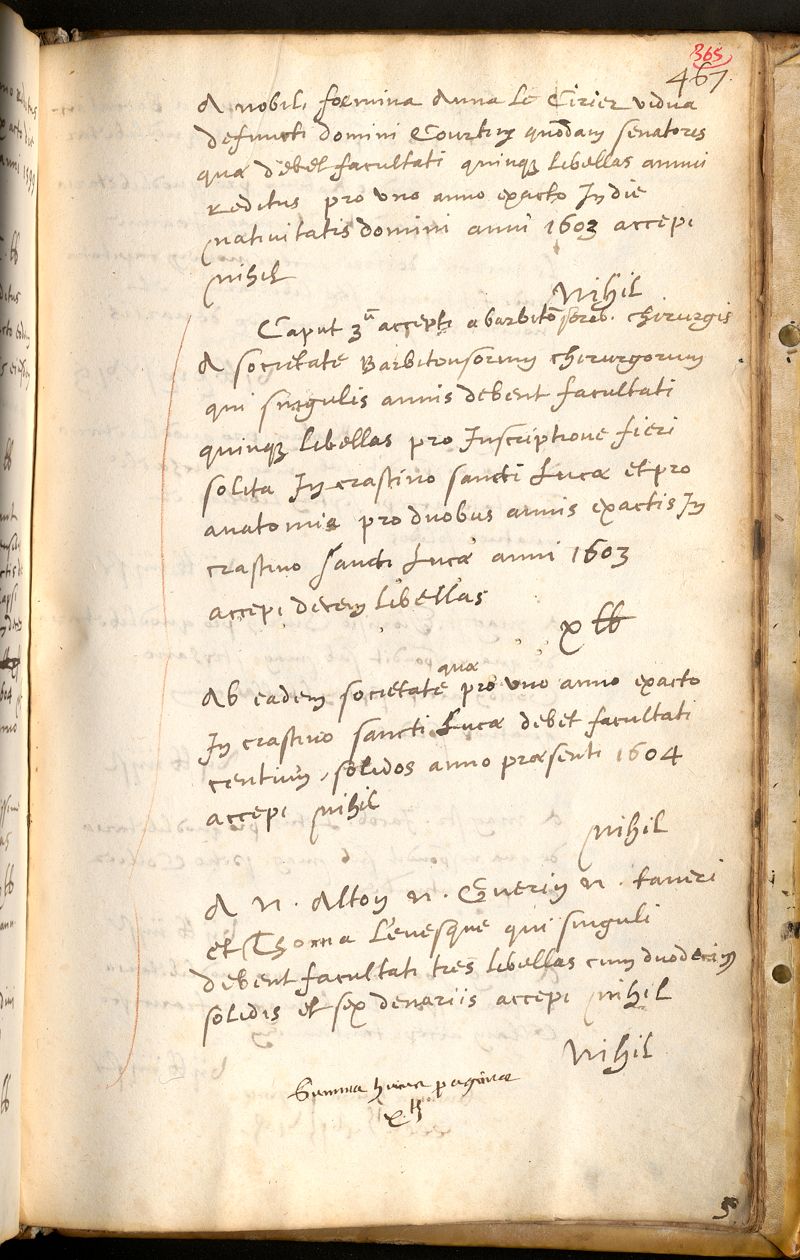 365
467.
A nobili foemina Anna Le Cirier vidua
defuncti domini Courtin quondam senatoris
quae debet facultati quinque libellas annui
reditus pro uno anno exacto In die
nativitatis domini anni 1603 accepi
nihil
Nihil
Caput 3ᵘ accepti a barbitōsorib. chirurgis
A societate Barbitonsorum chirurgorum
qui singulis annis debent facultati
quinque libellas pro Inscriptione fieri
solita In crastino sancti Lucae et pro
anatomia pro duobus annis exactis In
crastino sancti Lucae anni 1603
accepi decem libellas
x lb
Ab eadem societate quae pro uno anno exacto
In crastino sancti Lucae debet facultati
centum solidos anno praesenti 1604
accepi nihil
nihil
A N. Altoy N. Guerin N.
et Thoma Levesque qui singuli
debent facultati tres libellas cum duodecim
solidis et sex denariis accepi nihil
Nihil
Summa huius paginae
x lb